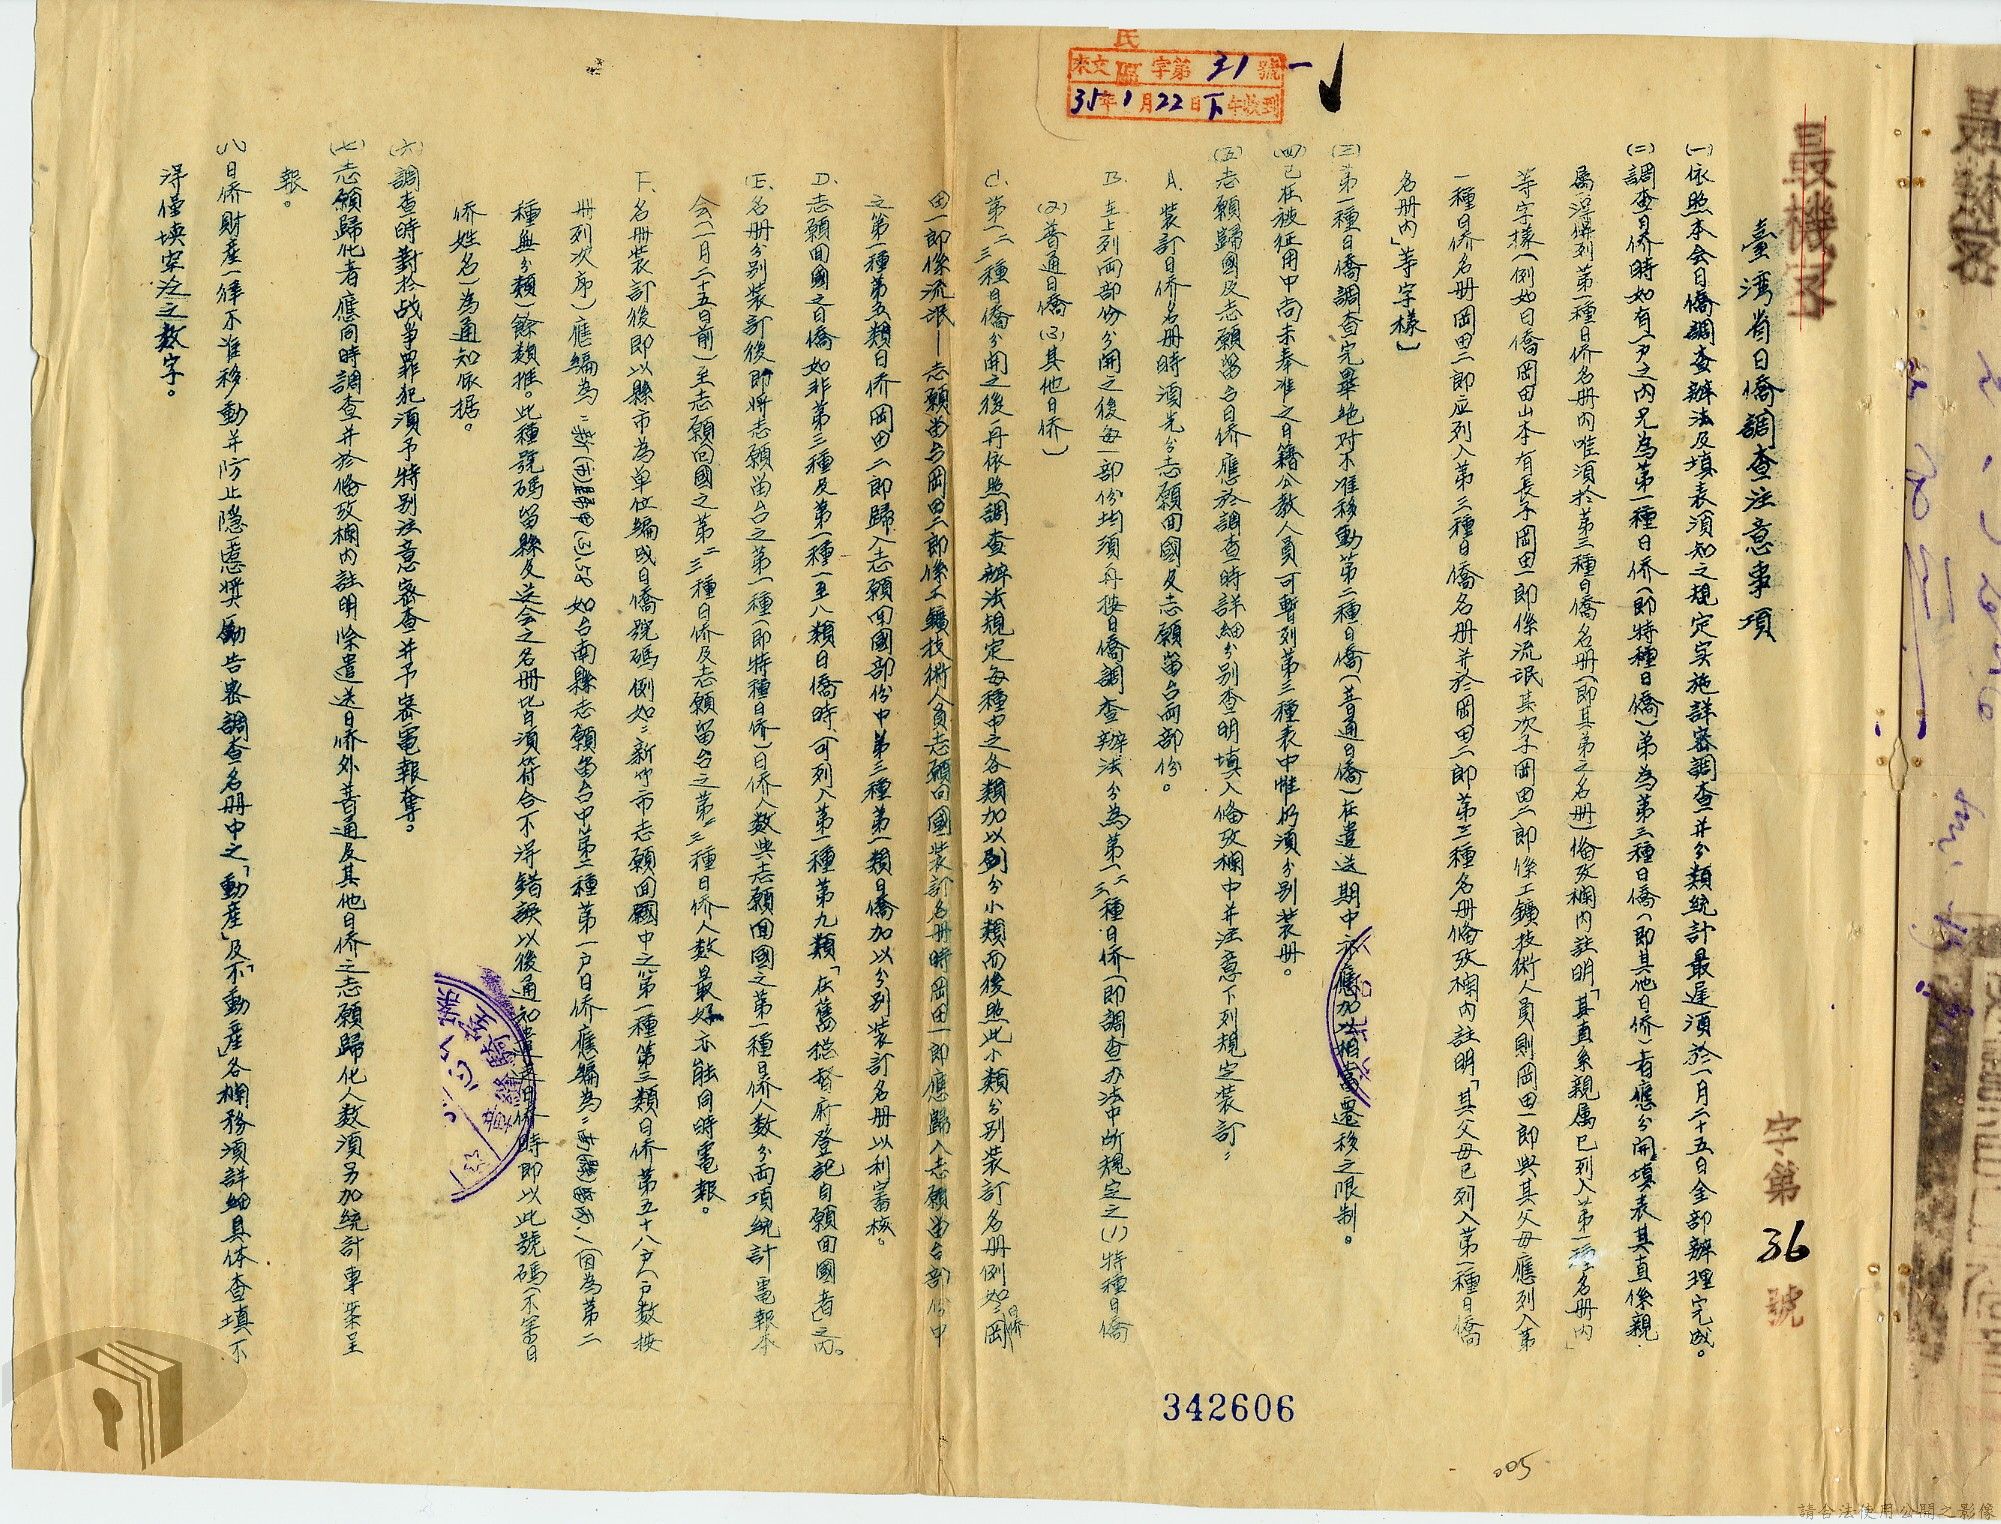 最機密
字第36號
民
來文 區 字第31號
35年1月22日下午收到
臺湾省日僑調查注意事項
(一)依照本会日僑調查辦法及填表須知之規定实施詳審調查并分類統計最遲須於一月二十五日全部辦理完成。
(二)調查日侨時如有一户之内兄為第一種日侨(即特種日僑)弟為第三種日僑(即其他日侨)者應分開填表其直係親
属得併列第一種日侨名册内唯須於第三種日僑名册(即其弟之名册)俻攷欄内註明「其直系親属已列入第一種名册内」
等字樣(例如日僑岡田山本有長子岡田一郎係流氓其次子岡田二郎係工鑛技術人員則岡田一郎與其父母應列入第
一種日侨名册岡田二郎应列入第三種日僑名册并於岡田二郎第三種名册俻攷欄内註明「其父母已列入第一種日僑
名册内」等字樣)
(三)第一種日僑調查完畢絶对不准移動第二種日僑(普通日僑)在遣送期中亦應加以相當遷移之限制。
(四)已在被征用中尚未奉准之日籍公教人員可暫列第三種表中惟仍須分别装册。
(五)志願歸國及志願留台日侨應於調查時詳細分别查明填入俻攷欄中并注意下列規定装訂:
A.装訂日侨名册時須先分志願囬國及志願留台两部份。
B.在上列两部份分開之後每一部份均須再按日僑調查辦法分為第一二三種日侨(即調查办法中所規定之(1)特種日僑
(2)普通日僑(3)其他日侨)
C.第一二三種日僑分開之後再依照調查辦法規定每種中之各類加以劃分小類而後照此小類分别装訂名册例如:日侨岡
田一郎係流氓——志願留台岡田二郎係工鑛技術人員志願囬國装訂名册時岡田一郎應歸入志願留台部份中
之第一種第五類日侨岡田二郎歸入志願囬國部份中第三種第一類日僑加以分别装訂名册以利審核。
D.志願囬國之日僑如非第三種及第一種一至八類日僑時可列入第一種第九類「在舊總督府登記自願囬國者」之内。
E.名册分别装訂後即將志願留台之第一種(即特種日侨)日侨人数與志願囬國之第一種日侨人数分两項統計電報本
会(一月二十五日前)至志願囬國之第二三種日侨及志願留台之第二三種日侨人数最好亦能同時電報。
F.名册装訂後即以縣市為单位編成日僑號碼例如:新竹市志願囬國中之第一種第三類日侨第五十八户(户数按
册列次序)應編為:
如台南縣志願留台中第二種第一户日侨應編為:
(因為第二
種無分類)餘類推。此種號碼留縣及送会之名册比自須符合不得錯誤以後通知遣送日侨時即以此號碼(不寫日
侨姓名)為通知依据。
(六)調查時對於战爭罪犯須予特别注意密查并予密電報奪。
(七)志願歸化者應同時調查并於俻攷欄内註明除遣送日侨外普通及其他日侨之志願歸化人数須另加統計專案呈
報。
(八)日侨財產一律不准移動并防止隱慝奬勵告密調查名册中之「動產」及「不動產」各欄務須詳細具体查填不
得僅填空泛之数字。
342606
005
請合法使用公開之影像